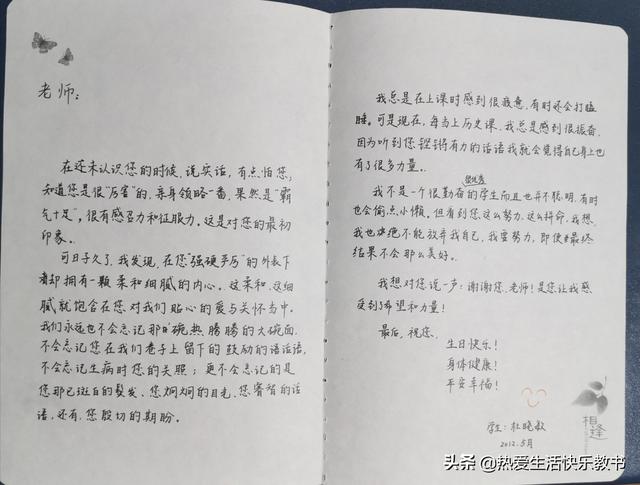 老师:
在还未认识您的时候,说实话,有点怕您,
知道您是很"厉害"的,亲身领略一番,果然是"霸
气十足",很有感召力和征服力。这是对您的最初
印象。
可日子久了,我发现,在您"强硬严厉"的外表下
者却拥有一颗柔和细腻的内心。这柔和、这细
腻就饱含在您对我们贴心的爱与关怀当中。
我们永远也不会忘记那碗热腾腾的大碗面,
不会忘记您在我们卷子上留下的鼓励的语话语,
不会忘记生病时您的关照;更不会忘记的是
您那已斑白的鬓发、您炯炯的目光、您睿智的话
语,还有,您殷切的期盼。
我总是在上课时感到很疲惫,有时还会打瞌
睡。可是现在,每当上历史课,我总是感到很振奋,
因为听到您铿锵有力的话语我就会觉得自己身上也
有了很多力量。
我不是一个很勤奋的学生而且也并不聪明,有时
也会偷点小懒。但看到您这么努力、这么拼命,我想,
我也决绝不能放弃我自己,我要努力,即使最终
结果不会那么美好。
我想对您说一声:谢谢您,老师!是您让我感
受到了希望和力量!
最后,祝您,
生日快乐!
身体健康!
平安幸福!
学生:杜晓敏
2012.5月
相逢
头条 @热爱生活快乐教书